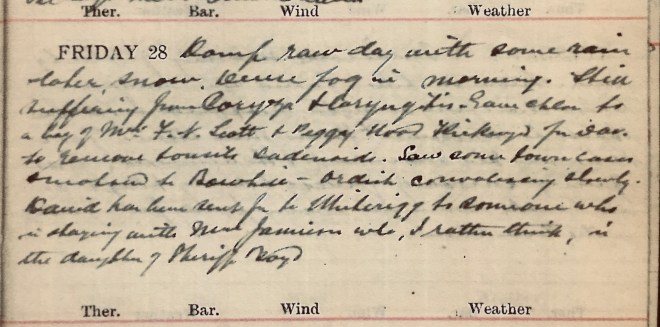 Ther. Bar. Wind Weather
FRIDAY 28 Damp raw day with some rain
later, snow. Dense fog in morning. Still
suffering from Coryza & laryngitis. Gave chlor to
a boy of Mrs F. N. Scott & Peggy Wood for Dav.
to remove tonsils & adenoids. Saw some town cases
& motored to Bowhill – convalescing slowly.
David has been sent for to to someone who
is staying with Mrs Jamieson who, I rather think, is
the daughter of Sheriff
Ther. Bar. Wind Weather